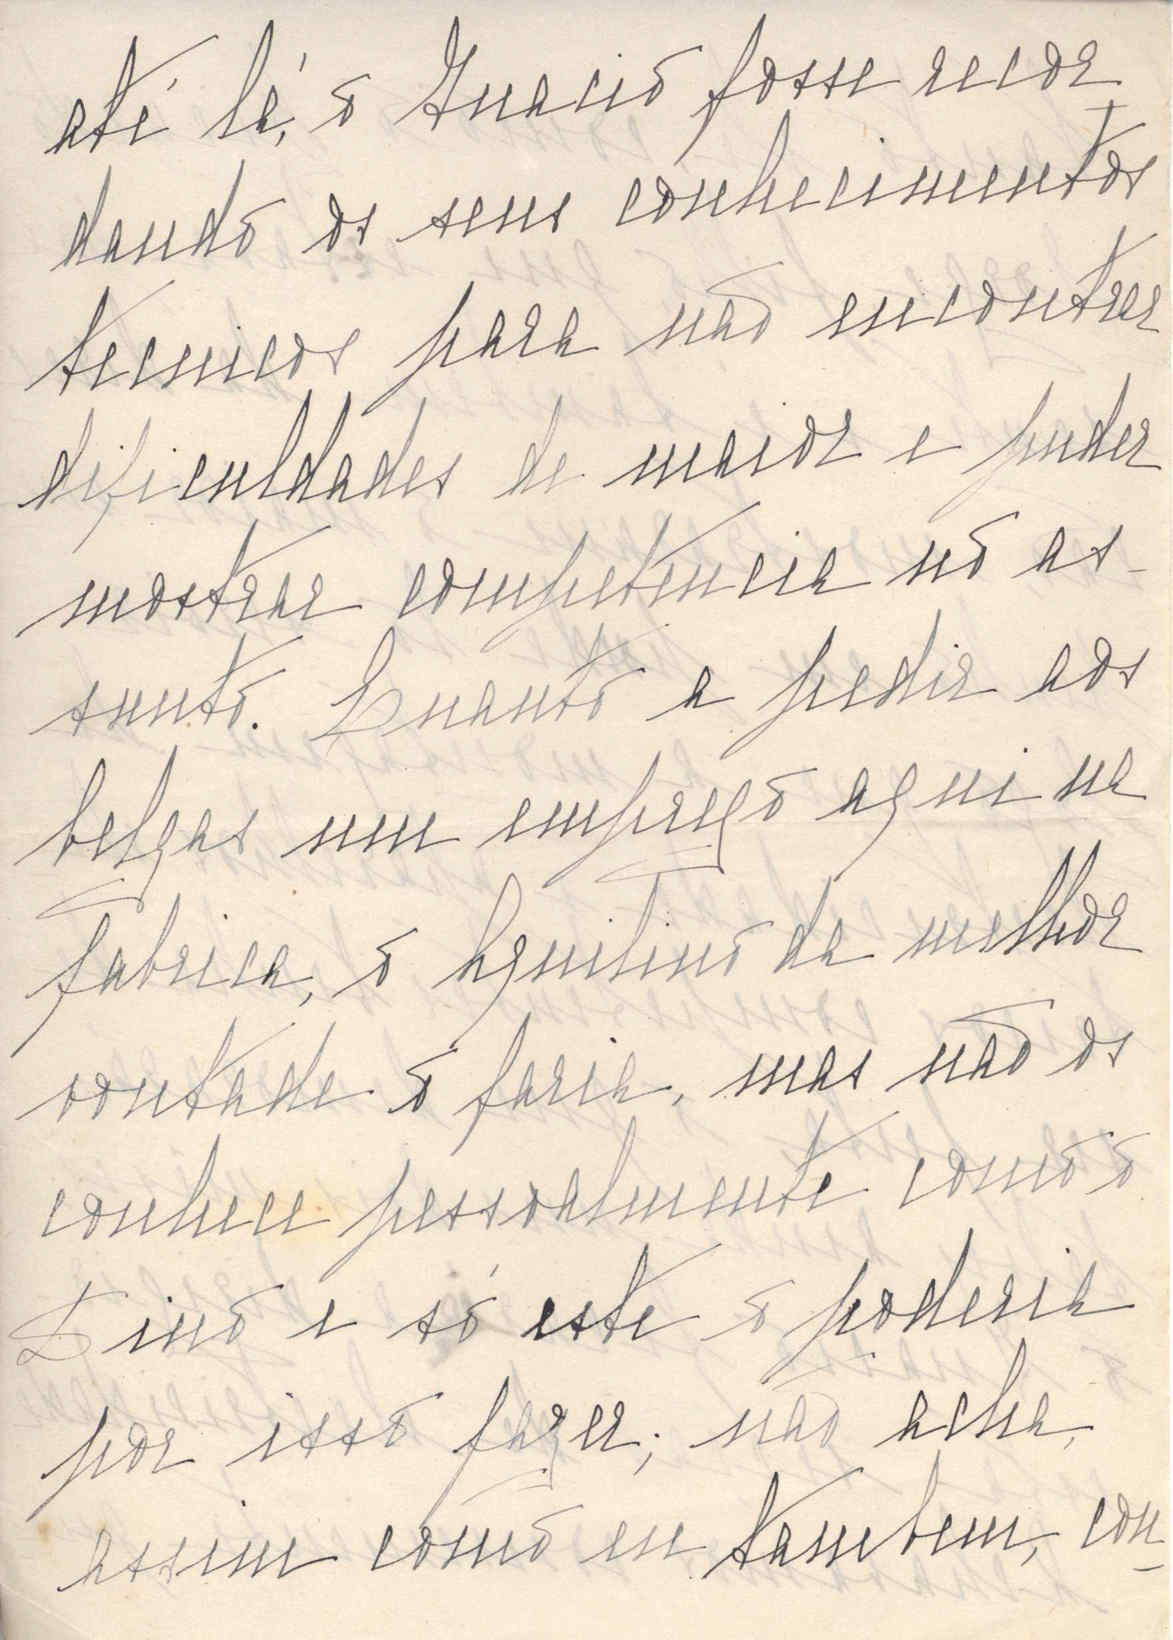 até lá, o Ignacio fosse recor
dando os seus conhecimentos
tecnicos para não encontrar
dificuldades de maior e puder
mostrar competencia no as-
sunto. Quanto a pedir aos
belgas um emprego aqui na
fabrica, o Aquilino da melhor
vontade o faria, mas não os
conhece pessoalmente como o
Dino e só este o poderia
por isso fazer; não acha,
assim como eu tambem, con-